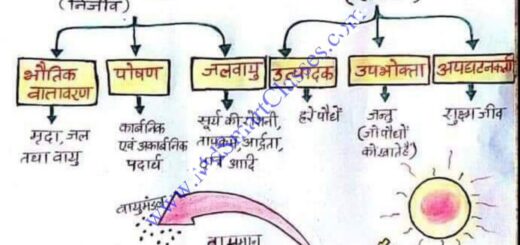 (निर्जीव)
भौतिक वातावरण
पोषण
जलवायु
उत्पादक
उपभोक्ता
अपघटनकर्ता
मृदा, जल
तथा वायु
कार्बनिक
एवं अकार्बनिक
पदार्थ
सूर्य की रोशनी,
तापक्रम आर्द्रता,
आदि
हरे पौधे
जन्तु
(जो पौधों
को खाते हैं)
सूक्ष्म जीव
वायुमंडल
तापमान